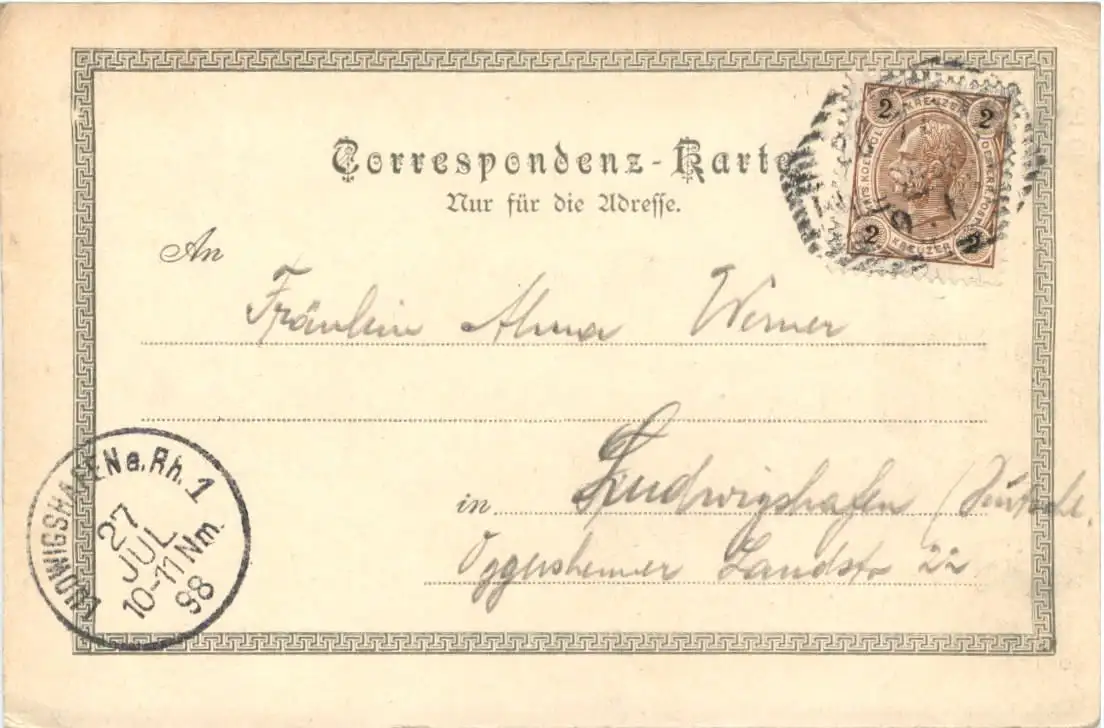 Correspondenz-Karte
Nur für die Adresse.
2 KREUZER 2
KAIS. KOENIGL. OESTERR. POST
2 KREUZER 2
An
Fräulein Alma Werner
in Ludwigshafen (Deutschl.
Oggersheimer Landstr 22
LUDWIGSHAFEN a. Rh. 1
27
JUL
10-11 Nm.
98